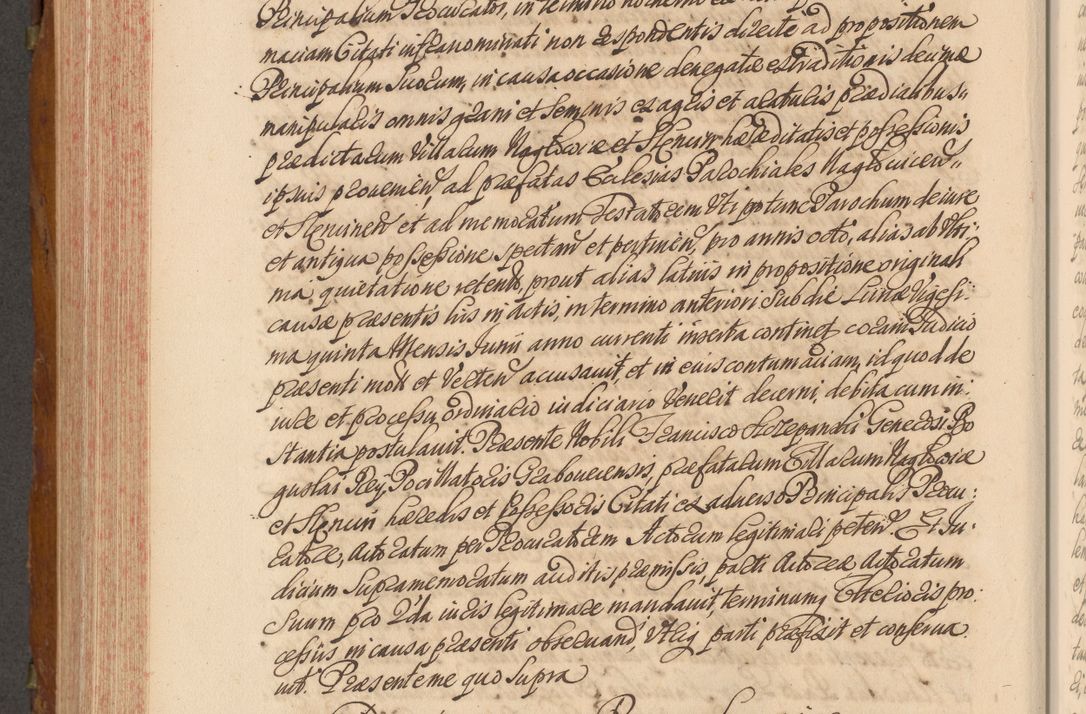 Principalium Procurator, in termino hodierno
maciam Citati infranominati non respondentis directe ad propositionem
Principalium Suorum, in causa occasione denegatæ extraditionis decimæ
manipularis omnis grani et seminis ex agris et aratulis prædialibus
prædictarum Villarum Nagłowice et Slęcin hæreditatis et possessionis
ipsius proveniẽ, ad præfatas Ecclesias Parochiales Nagłovicen
et Slęcinen et ad memoratum Testatorem uti pro tunc Parochum de iure
et antiqua possessione spectan et pertinen, pro annis octo, alias ab Ulti-
ma quietatione retento, prout alias latius in propositione originali
causæ præsentis his in actis, in termino anteriori Sub die Lunæ Vigesi-
ma quinta Mensis Junii anno currenti inserta continet coram Judicio
præsenti mott et Verten accusavit, et in eius contumaciam, id quod de
iure et processu ordinario iudiciario Venerit decerni, debita cum in-
stantia postulavit. Præsente Nobili Francisco Szczepanski Generosi Bo
guslai Rey, Pocillatoris Grabovecensis, præfatarum Villarum Nagłowice
et Slęcin hæredis et possessoris Citati ex adverso Principalis Procu-
ratore, Actoratum per Procuratorem Actorum legitimari peten. Et Ju-
dicium Supramemoratum auditis præmissis, parti Actoreæ Actoratum
Suum pro 2da iuris legitimare mandavit, terminumq
 processus in causa præsenti observand, Utriq parti præfixit et conserva
vit. Præsente me quo Supra